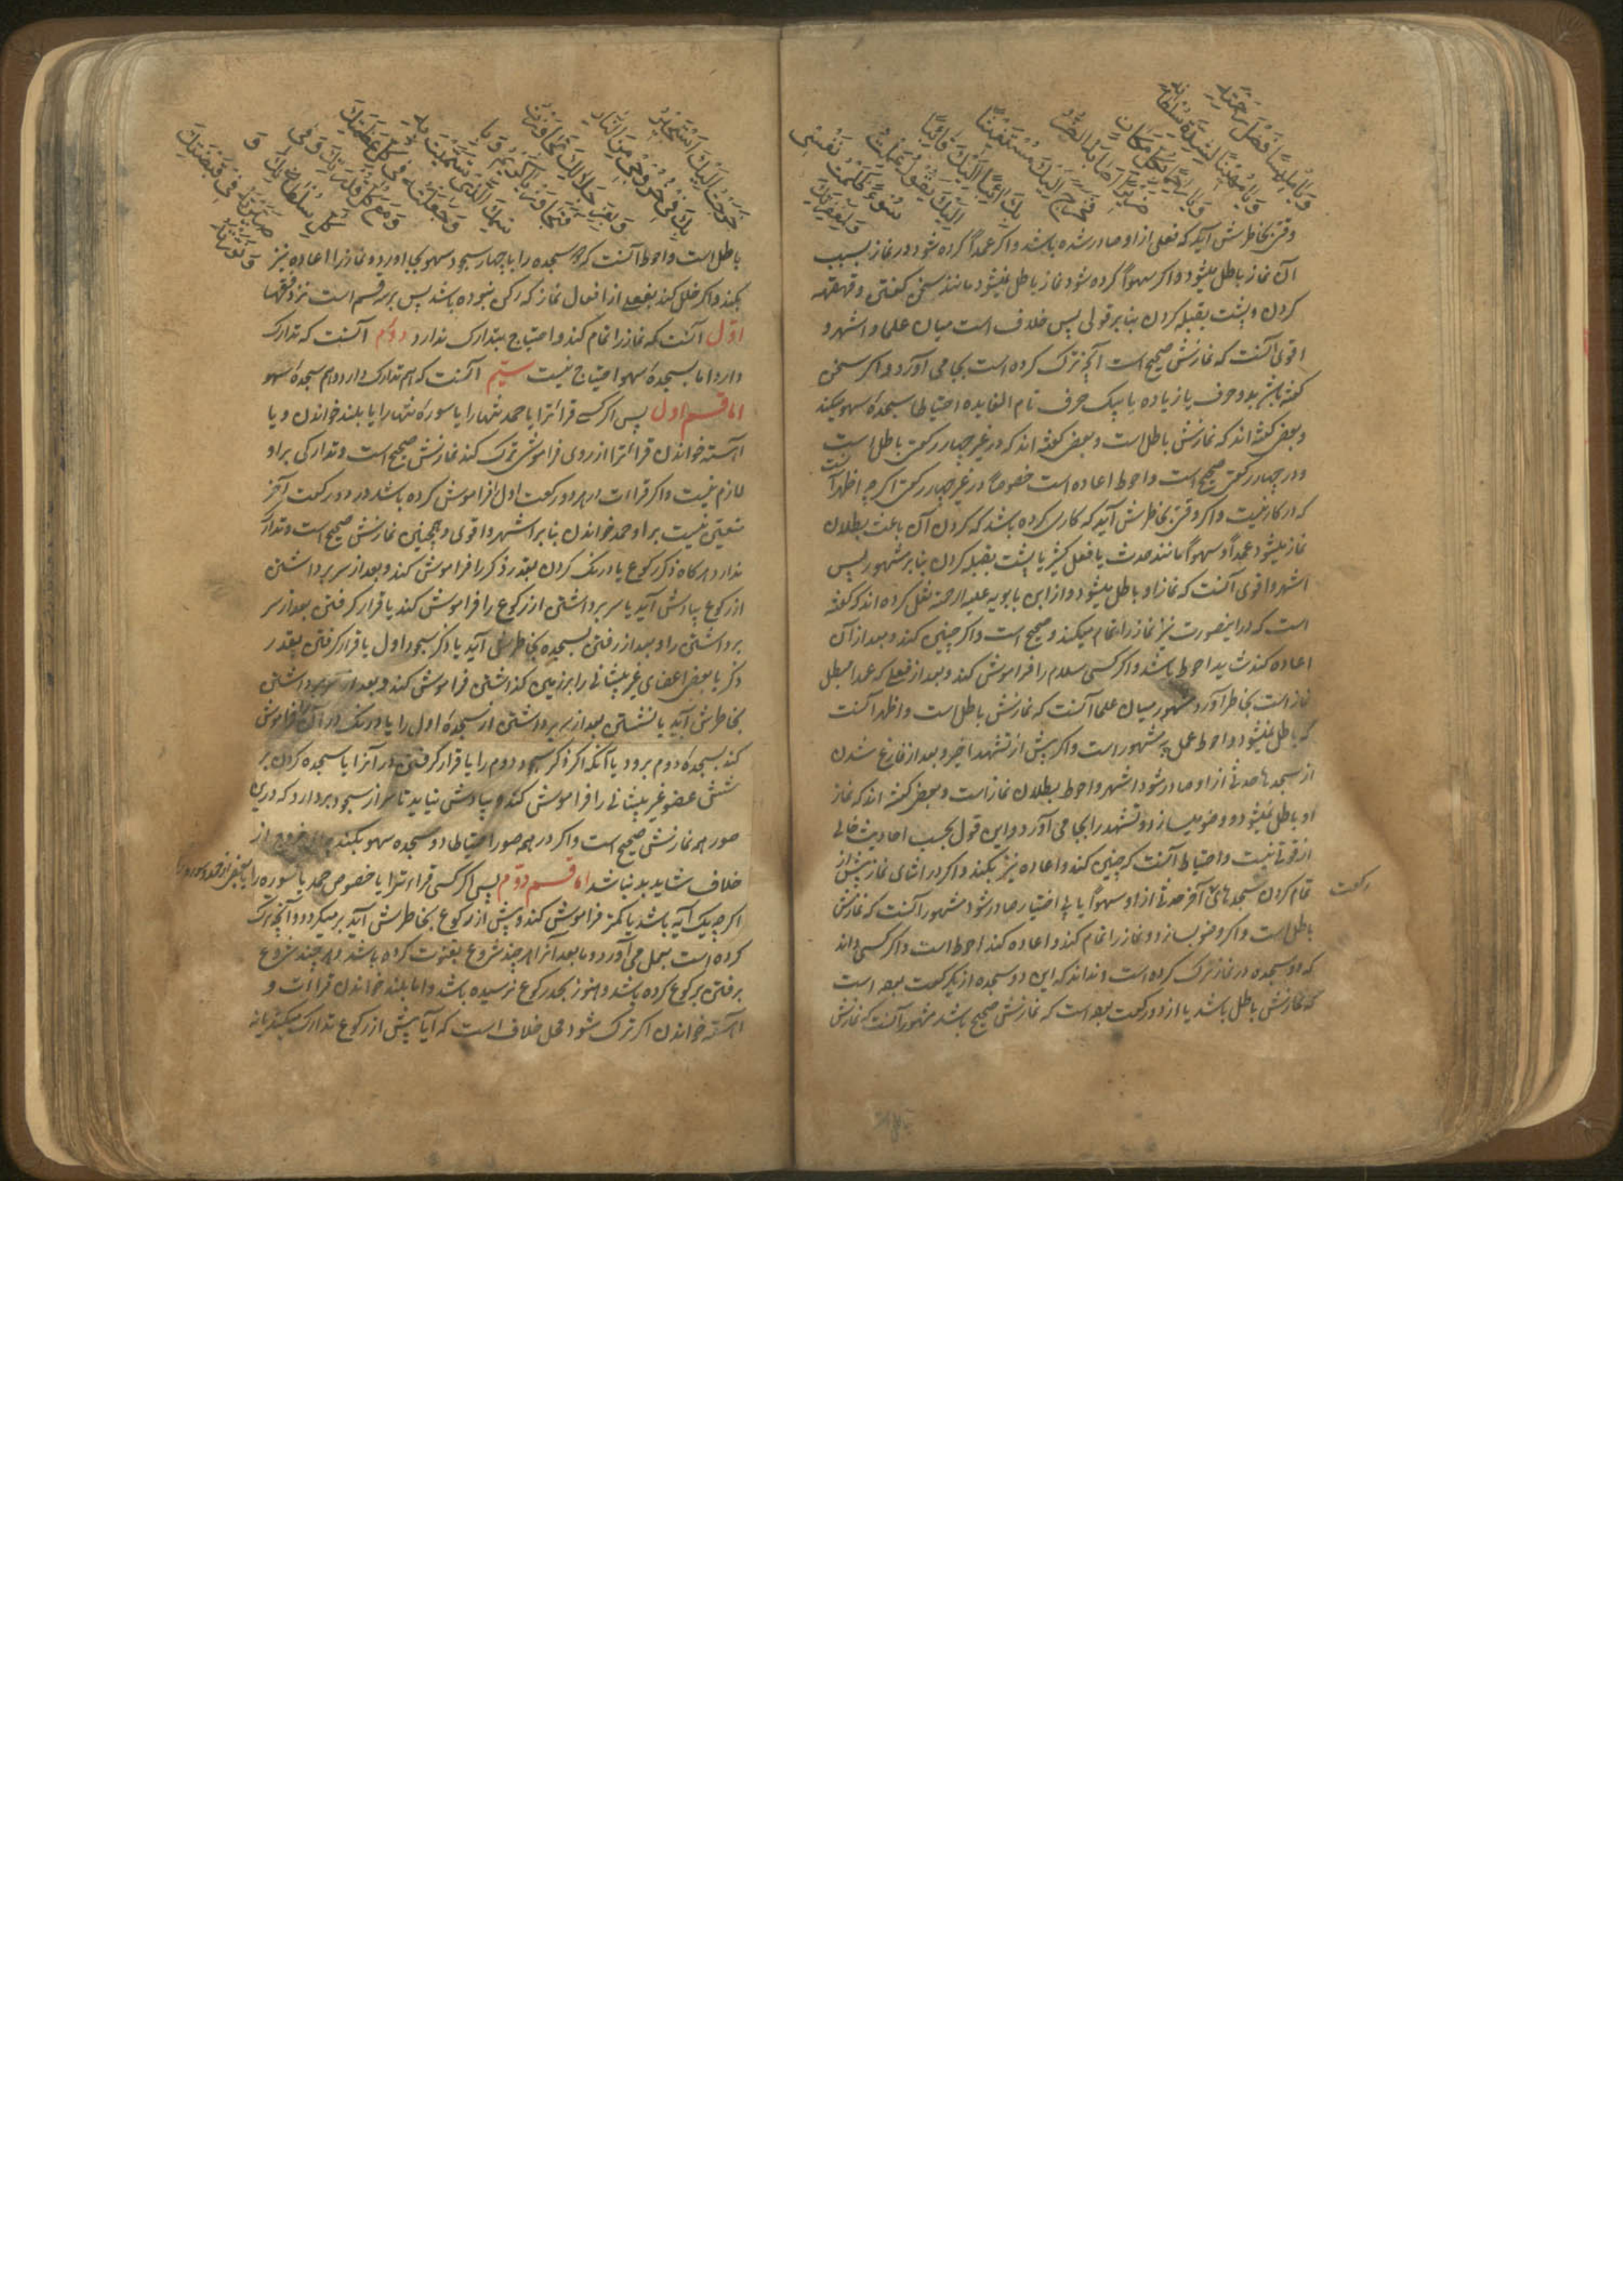 وقتی بخاطرش آید که فعلی از او صادر شده باشد و اگر عمداً کرده شود در نماز بسبب
آن نماز باطل میشود و اگر سهواً کرده شود نماز باطل نمیشود مانند سخن کفتن و قهقهه
کردن و پشت بقبله کردن بنابر قولی پس خلاف است میان علما و اشهر و
اقوی آنست که نمازش صحیح است آنچه ترک کرده است بجا می آورد و اگر سخن
کفته باشد بدو حرف یا زیاده یا بیک حرف تام الفایده احتیاطا سجده سهو میکند
و بعضی کفته اند که نمازش باطل است و بعضی کفته اند که در غیر چهار رکعتی باطل است
و در چهار رکعتی صحیح است و احوط اعاده است خصوصاً در غیر چهار رکعتی اگرچه اظهر آنست
که در کار نیست و اگر وقتی بخاطرش آید که کاری کرده باشد که کردن آن باعث بطلان
نماز میشود عمداً و سهواً مانند حدث یا فعل کثیر یا پشت بقبله کردن بنابر مشهور پس
اشهر و اقوی آنست که نماز او باطل میشود و از ابن بابویه علیه الرحمة نقل کرده اند که کفته
است که در اینصورت نیز نماز را تمام میکند و صحیح است و اگر چنین کند و بعد از آن
اعاده کند شاید احوط باشد و اگر کسی سلام را فراموش کند و بعد از فعلی که عمدا مبطل
نماز است بخاطر آورد مشهور میان علما آنست که نمازش باطل است و اظهر آنست
که باطل نمیشود و احوط عمل به مشهور است و اگر پیش از تشهد اخیر و بعد از فارغ شدن
از سجدها حدثی از او صادر شود اشهر و احوط بطلان نماز است و بعضی کفته اند که نماز
او باطل نمیشود و وضو میسازد و تشهد را بجا می آورد و این قول بحسب احادیث خالی
از قوتی نیست و احتیاط آنست که چنین کند و اعاده نیز بکند و اگر در اثنای نماز پیش از
تمام کردن سجدهای آخر حدثی از او سهواً یا بی اختیار صادر شود مشهور آنست که نمازش
رکعت
باطل است و اگر وضو بسازد و نماز را تمام کند و اعاده کند احوط است و اگر کسی داند
که دو سجده در نماز ترک کرده است و نداند که این دو سجده از یک رکعت بوده است
که نمازش باطل باشد یا از دو رکعت بوده است که نمازش صحیح باشد مشهور آنست که نمازش
باطل است و احوط آنست که سجده را با چهار سجود سهو بجا اورد و نماز را اعاده نیز
بکند و اگر خلل کند بفعلی از افعال نماز که رکن نبوده باشد پس بر سه قسم است نزد فقها
اوّل آنست که نماز را تمام کند و احتیاج بتدارک ندارد دوّم آنست که تدارک
دارد اما بسجدهٔ سهو احتیاج نیست سیّم آنست که هم تدارک دارد و هم سجدهٔ سهو
اما قسم اول پس اگر کسی قرائترا یا حمد تنها را یا سوره تنها را یا بلند خواندن و یا
آهسته خواندن قرائترا از روی فراموشی ترک کند نمازش صحیح است و تدارکی بر او
لازم نیست و اگر قراات در هر دو رکعت اول فراموش کرده باشد در دو رکعت آخر
متعین نیست بر او حمد خواندن بنابر اشهر و اقوی و همچنین نمازش صحیح است و تدارک
ندارد هرگاه ذکر رکوع یا درنک کردن بقدر ذکر را فراموش کند و بعد از سر برداشتن
از رکوع بیادش آید یا سر برداشتن از رکوع را فراموش کند یا قرار کرفتن بعد از سر
برداشتن را و بعد از رفتن بسجده بخاطرش آید یا ذکر سجود اول یا قرار کرفتن بقدر
ذکر یا بعضی اعضای غیر پیشانی را بر زمین کذاشتن فراموش کند و بعد از سر برداشتن
بخاطرش آید یا نشستن بعد از سر برداشتن از سجدهٔ اول را یا درنک در آن فراموش
کند بسجده دوم برود یا آنکه اگر ذکر سجود دوم را یا قرار کرفتن در آنرا یا سجده کردن بر
شش عضو غیر پیشانی را فراموش کند و بیادش نیاید تا سر از سجود بردارد که درین
صور همه نمازش صحیح است و اگر در همه صور احتیاطا دو سجده سهو بکند برای خروج از
خلاف شاید بد نباشد اما قسم دوّم پس اگر کسی قراءترا یا خصوص حمد یا سوره را یا بعضی از حمد و سوره را
اگرچه یک آیه باشد یا کمتر فراموش کند و پیش از رکوع بخاطرش آید بر میکردد و آنچه ترک
کرده است بعمل می آورد و ما بعد آنرا هرچند شروع بقنوت کرده باشد و هرچند شروع
برفتن برکوع کرده باشد و هنوز بحد رکوع نرسیده باشد و اما بلند خواندن قراات و
آهسته خواندن اگر ترک شود محل خلاف است که آیا پیش از رکوع تدارک میکند یا نه